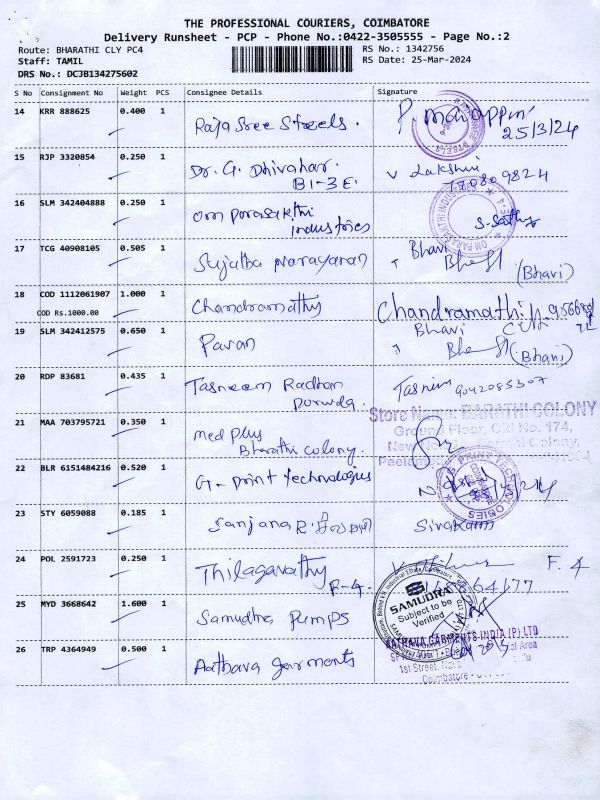 THE PROFESSIONAL COURIERS, COIMBATORE
Delivery Runsheet - PCP - Phone No.:0422-3505555 - Page No.:2
Route: BHARATHI CLY PC4 RS No.: 1342756
Staff: TAMIL RS Date: 25-Mar-2024
DRS No.: DCJB134275602
S No Consignment No Weight PCS Consignee Details Signature
14 KRR 888625 0.400 1 Raja Sree Steels.
25/3/24
15 RJP 3320854 0.250 1 Dr. G. Dhivahar. V Lakshmi
B1-3E.
16 SLM 342404888 0.250 1 Om parasakthi
industries
17 TCG 40908105 0.505 1 Sujatha Narayanan Bhavi
(Bhavi)
18 COD 1112061907 1.000 1 Chandramathy Chandramathi
COD Rs.1000.00
19 SLM 342412575 0.650 1 Pavan Bhavi
(Bhavi)
20 RDP 83681 0.435 1 Tasneem Tasnim 9042085307
21 MAA 703795721 0.350 1 med plus Store Name: BARATHI COLONY
Bharathi colony. Ground Floor, No. 174,
Colony,
22 BLR 6151484216 0.520 1 G-print technologies
23 STY 6059088 0.185 1 Sanjana R. Sivakami
24 POL 2591723 0.250 1 Thilagavathy F. 4
F-4.
25 MYD 3668642 1.600 1 Samudra pumps SAMUDRA
Subject to be
Verified
26 TRP 4364949 0.500 1 Aathava garments AATHAVA GARMENTS INDIA (P) LTD
1st Street,
Coimbatore